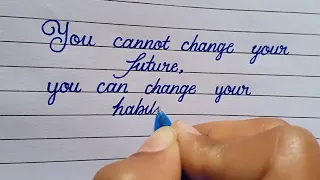 You cannot change your
future,
you can change your
habi